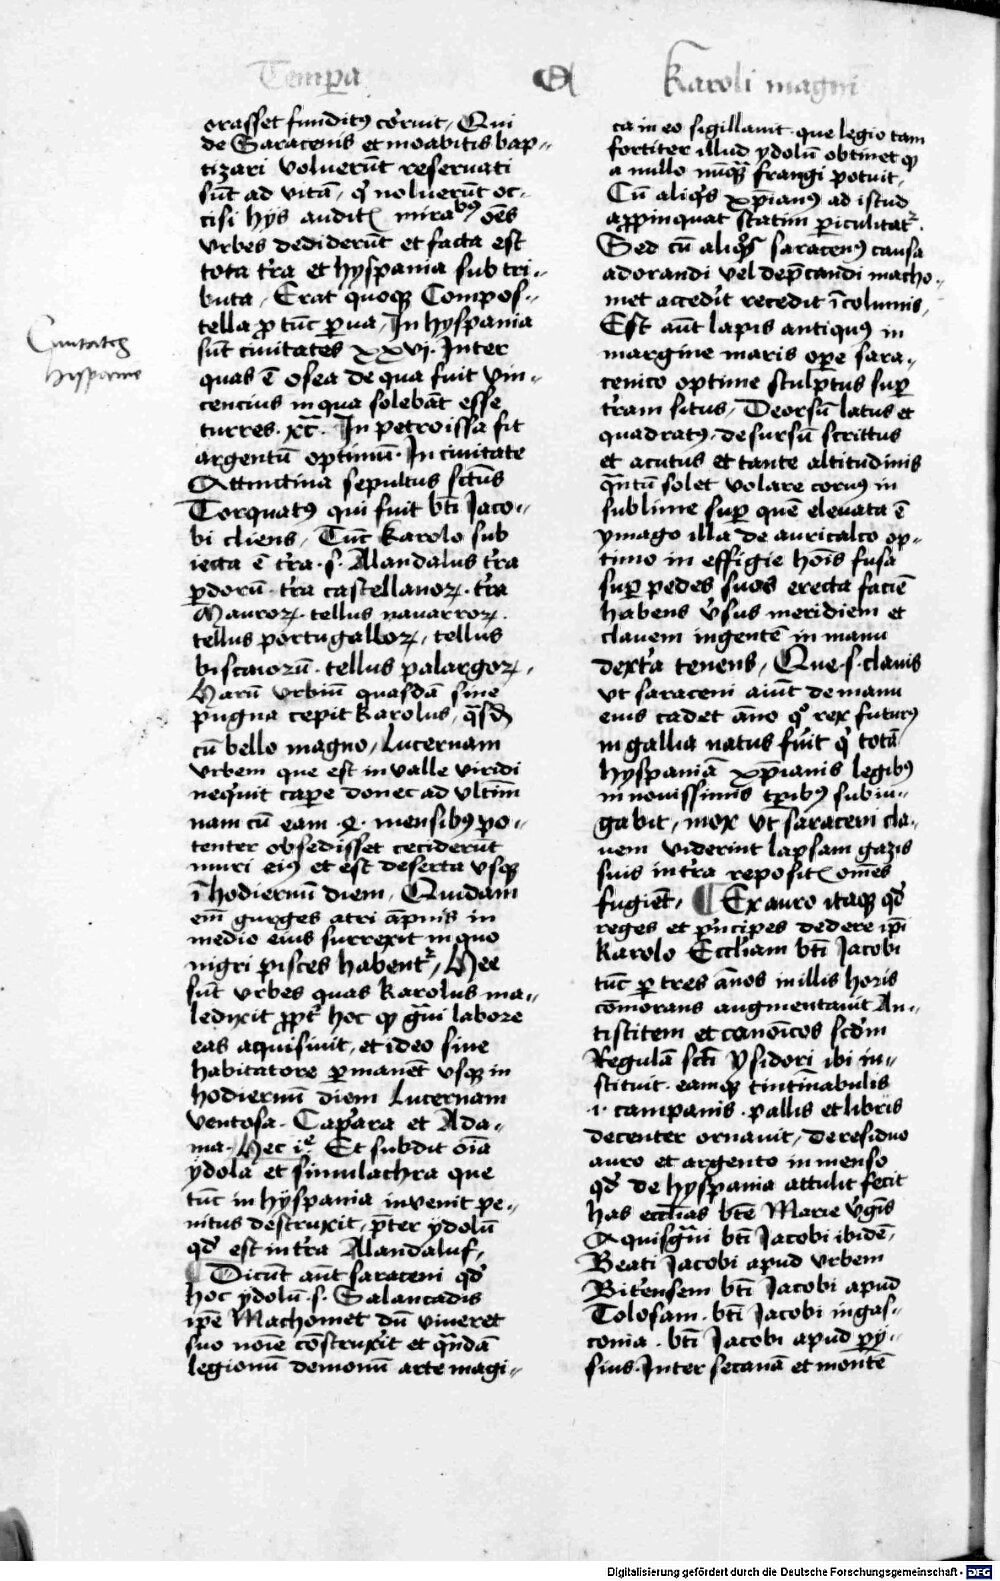 Tempora
Karoli magni
orasset funditꝰ corruit, Qui
de Saracenis et moabitis bap-
tizari voluerūt reservati
sūt ad vitā, qͥ noluerūt oc-
cisi hijs auditꝭ mirabꝰ oēs
vrbes dediderūt et facta est
tota tr̄a et hyspania sub tri-
buta, Erat quoqꝫ Compos-
tella ꝓ tūc ꝑua, In hyspania
sūt ciuitates xxvj. Inter
quas ē osea de qua fuit vin-
cencius in qua solebāt esse
turres. xc. In petroissa fit
argentū optimū. In ciuitate
Attintina sepultus sctūs
Torquatꝰ qui fuit bt̄i Jaco-
bi cliens, Tūc karolo sub
iecta ē tr̄a .s. Alandalus tr̄a
ꝑdorū. tr̄a castellanoꝝ. tr̄a
Mauroꝝ. tellus nauarroꝝ.
tellus portugalloꝝ, tellus
biscaiorū. tellus palargoꝝ,
Harū vrbiū quasdā sine
pugna cepit karolus, qͣsdā
cū bello magno, Lucernam
vrbem que est in valle viridi
neqͥuit caꝑe donec ad vltim̄
nam cū eam .4. mensibꝰ po-
tenter obsedisset ceciderūt
muri eiꝰ et est deserta vsqꝫ
ī hodiernū diem, Quidam
em̄ gurges atri āpnis in
medio eius surrexit in quo
nigri pisces habentᷣ, Hee
sūt vrbes quas karolus ma-
ledixit ꝓpt̄ hoc qꝫ gͣui labore
eas aquisiuit, et ideo sine
habitatore ꝑmanēt vsqꝫ in
hodiernū diem Lucernam
ventosa. Capͣara et Ada-
ma. Hec iͤ. Et subdit oīa
ydola et simulachra que
tūc in hyspania invenit pe-
nitus destruxit, p̄ter ydolū
qd̄ est in tr̄a Alandaluf,
¶ Dicūt aūt saraceni qd̄
hoc ydolū .s. Salancadis
ip̄e Machomet dū viueret
suo noīe cōstruxit et qͣndā
legionū demonū arte magi-
Ciuitates
hispanie
ca in eo sigillauit. que legio tam
fortiter illud ydolū obtinet qꝫ
a nullo nūqͣ frangi potuit,
Cū aliqͥs xp̄ianꝰ ad istud
appinquat statim periculitatᷣ.
Sed cū aliqͥs saracenꝰ causa
adorandi vel dep̄candi macho-
met accedit recedit īcolumis,
Est aūt lapis antiquꝰ in
margine maris oꝑe sara-
cenico optime sculptus suꝑ
tr̄am situs, Deorsū latus et
quadratꝰ. desursū strictus
et acutus et tante altitudinis
qͣntū solet volare coruꝰ in
sublime suꝑ quē eleuata ē
ymago illa de auricalco op-
timo in effigie hoīs fusa
suꝑ pedes suos erecta faciē
habens v̄sus meridiem et
clauem ingentē in manu
dext̄a tenens, Que .s. clauis
vt saraceni aiūt de manu
eius cadet āno qͦ rex futurꝰ
in gallia natus fūit qͥ totā
hyspaniā xp̄ianis legibꝰ
in nouissimis tp̄ibꝰ subiu-
gabit, mox vt saraceni cla-
uem viderint lapsam gazis
suis in tr̄a repositꝭ om̄es
fugiēt, ¶ Ex auro itaqꝫ qd̄
reges et pͥncipes dedere ip̄i
karolo Eccl̄iam bt̄i Jacobi
tūc ꝑ tres ānos in illis horis
cōmorans augmentauit An-
tistitem et canōicos scdm̄
Regulā sct̄i Ysidori ibi in-
stituit. eamqꝫ tintīnabulis
.i. campanis. pallis et libris
decenter ornauit, de residuo
auro et argento in menso
qd̄ de hyspania attulit fecit
has eccl̄ias bt̄e Marie v̄gīs
Aquisgͣni bt̄i Jacobi ibidē,
Beati Jacobi apud vrbem
Bit̄ensem bt̄i Jacobi apud
Tolosam. bt̄i Jacobi in gas-
conia. bt̄i Jacobi apud py-
sius. Inter secanā et montē
Digitalisierung gefördert durch die Deutsche Forschungsgemeinschaft - DFG